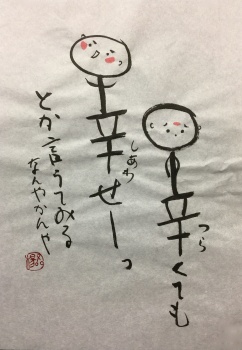 辛くても
つら
辛せーっ
しあわ
とか言うてみる
なんやかんや